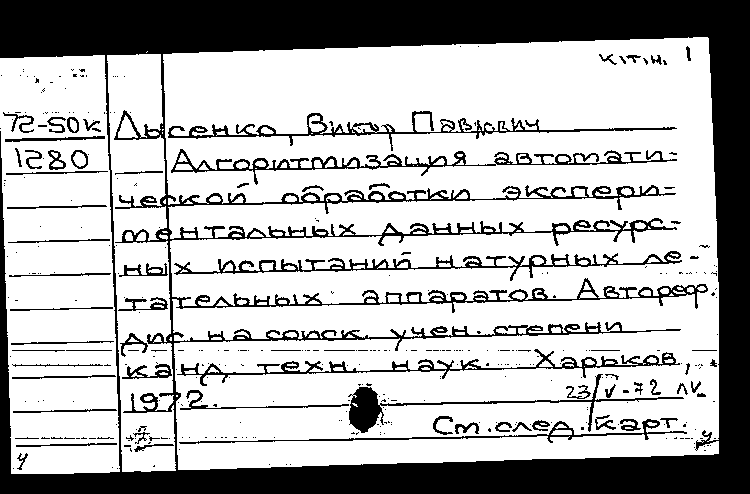 к.т.н. 1
72-50к Лысенко, Виктор Павлович
1280 Алгоритмизация автомати-
ческой обработки экспери-
ментальных данных ресурс-
ных испытаний натурных ле-
тательных аппаратов. Автореф.
дис. на соиск. учен. степени
канд. техн. наук. Харьков,
1972.
23/V-72
См. след. карт.